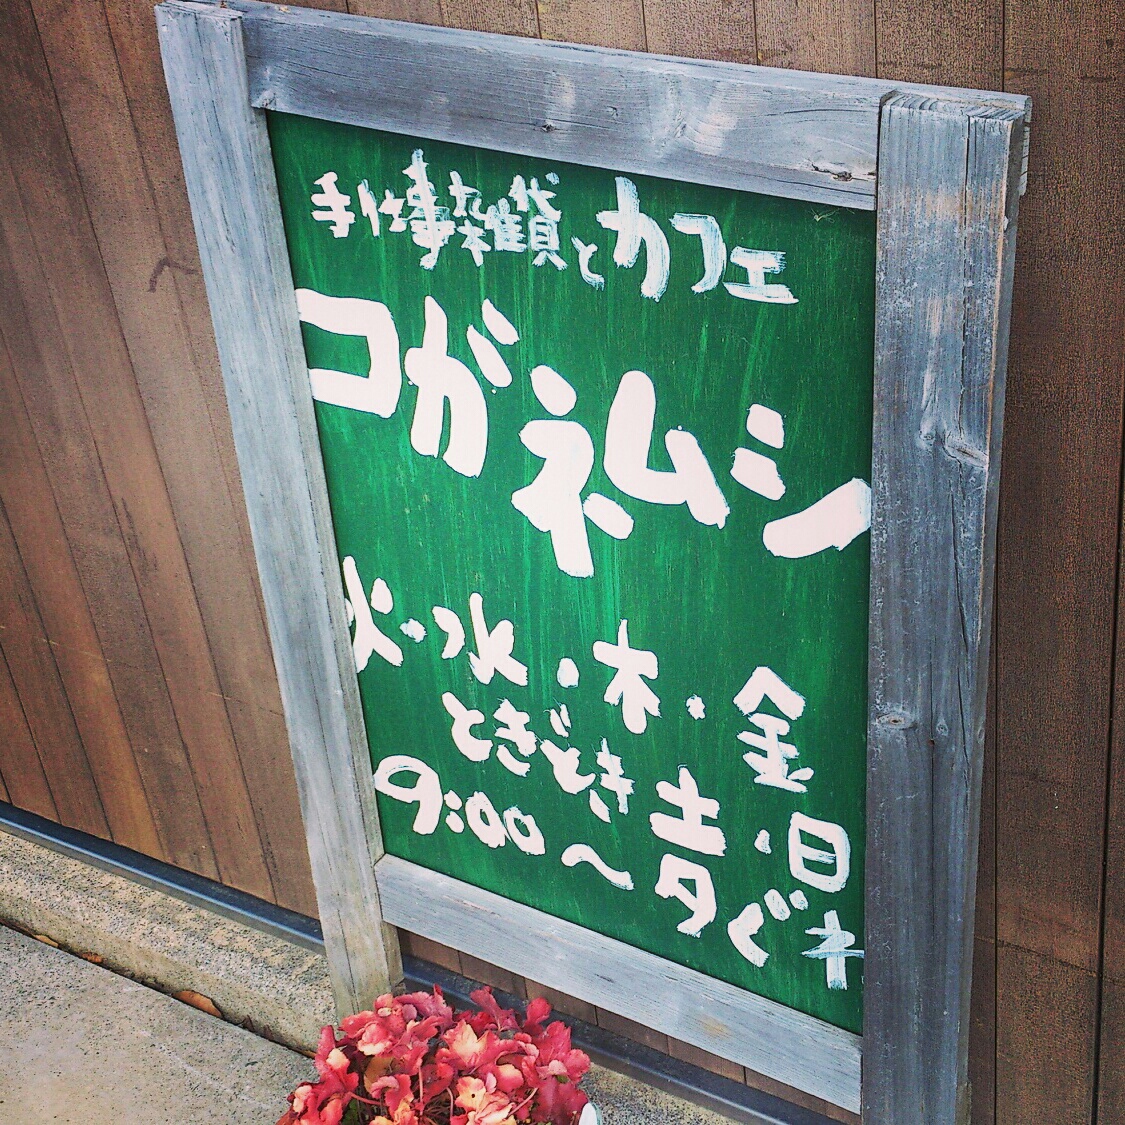 手仕事雑貨とカフェ
コガネムシ
火・水・木・金
ときどき土・日
9:00〜夕ぐれ